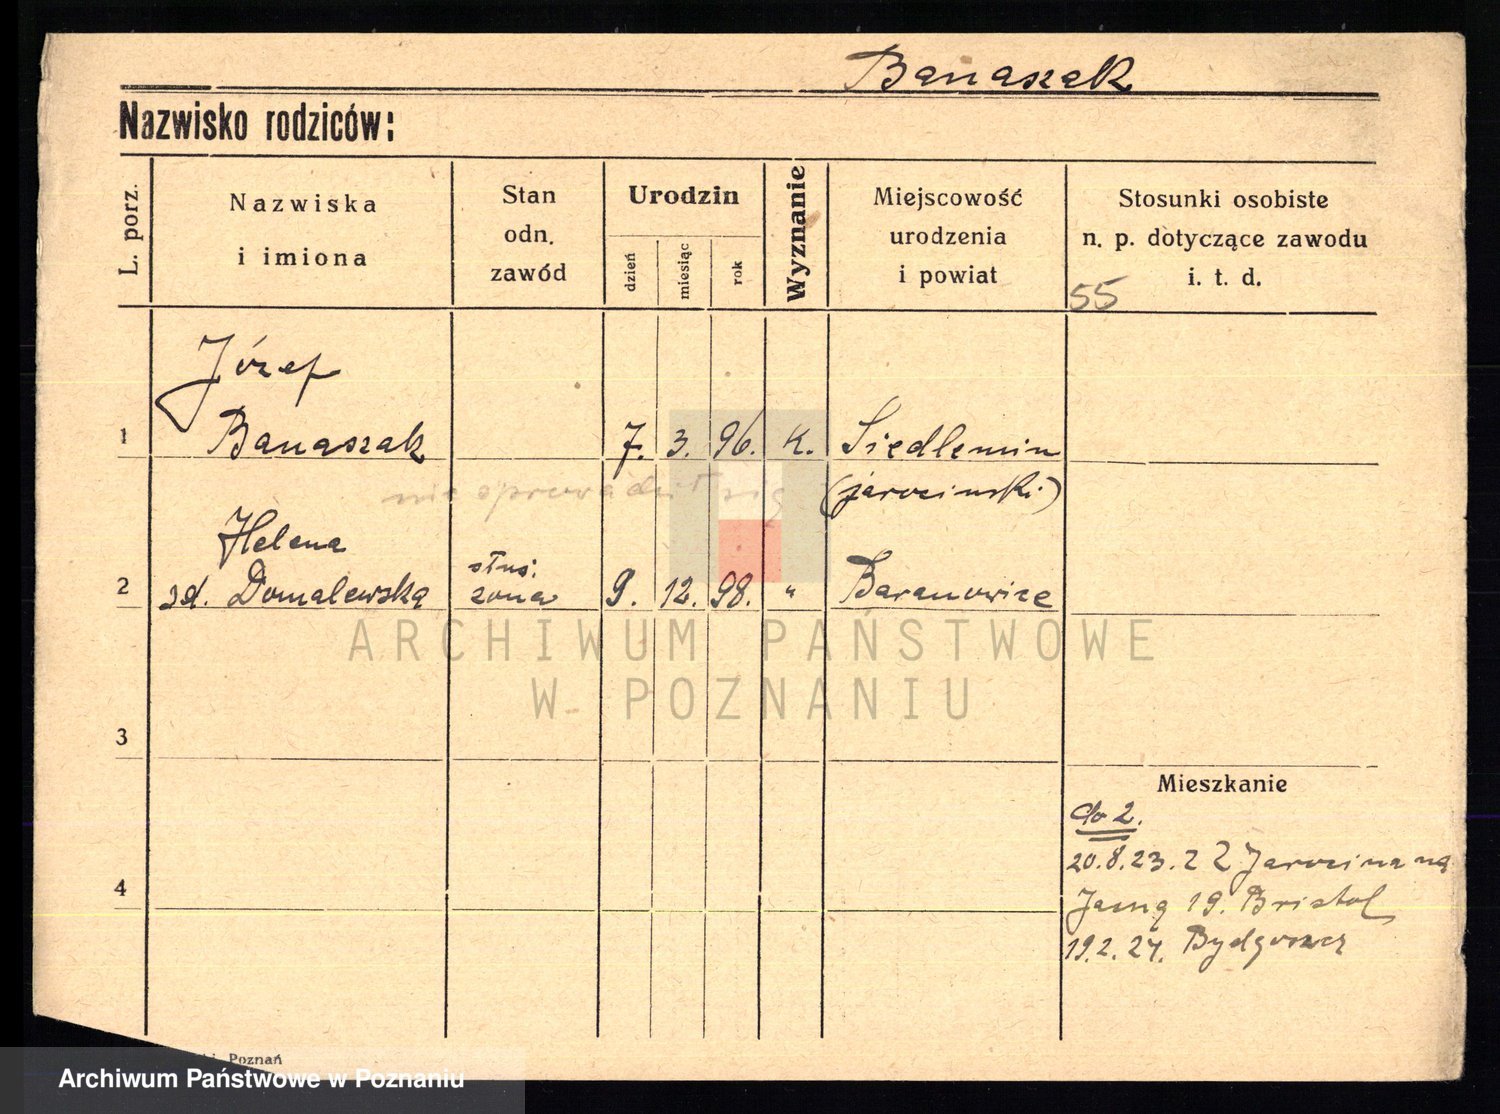 Banaszak
Nazwisko rodziców:
L. porz.
Nazwiska
i imiona
Stan
odn.
zawód
Urodzin
dzień
miesiąc
rok
Wyznanie
Miejscowość
urodzenia
i powiat
Stosunki osobiste
n. p. dotyczące zawodu
i. t. d.
55
Józef
1 Banaszak 7. 3. 96. K. Siedlemin
(jarocinski)
nie sprowadził się
Helena
służ.
2 zd. Domalewską żona 9. 12. 98. " Baranowice
ARCHIWUM PAŃSTWOWE
W POZNANIU
3
Mieszkanie
do 2.
20.8.23. z Jarocina na
4
Jasną 19. Bristol
19.2.24. Bydgoszcz
Poznań
Archiwum Państwowe w Poznaniu